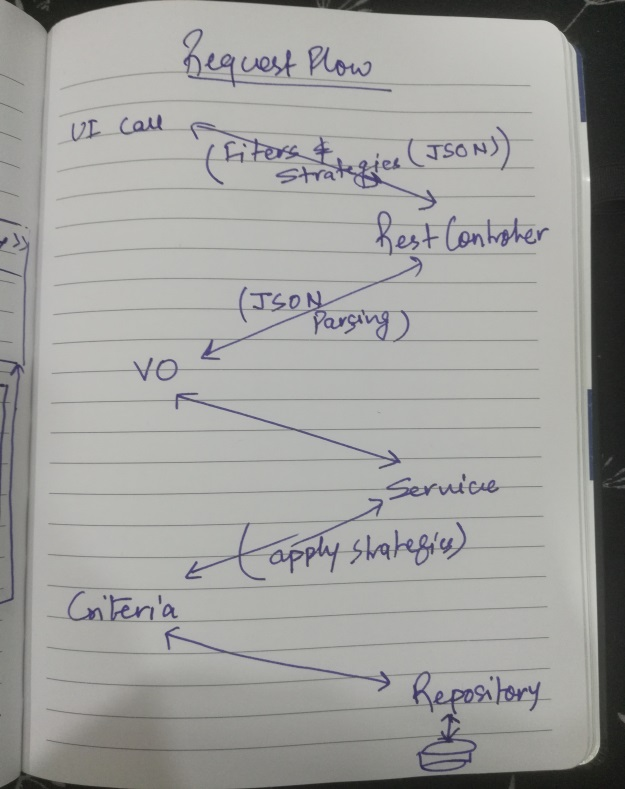 Request Flow
UI Call
(Fiters &
Strategies (JSON))
Rest Controller
(JSON
Parsing)
VO
Service
(apply strategies)
Criteria
Repository